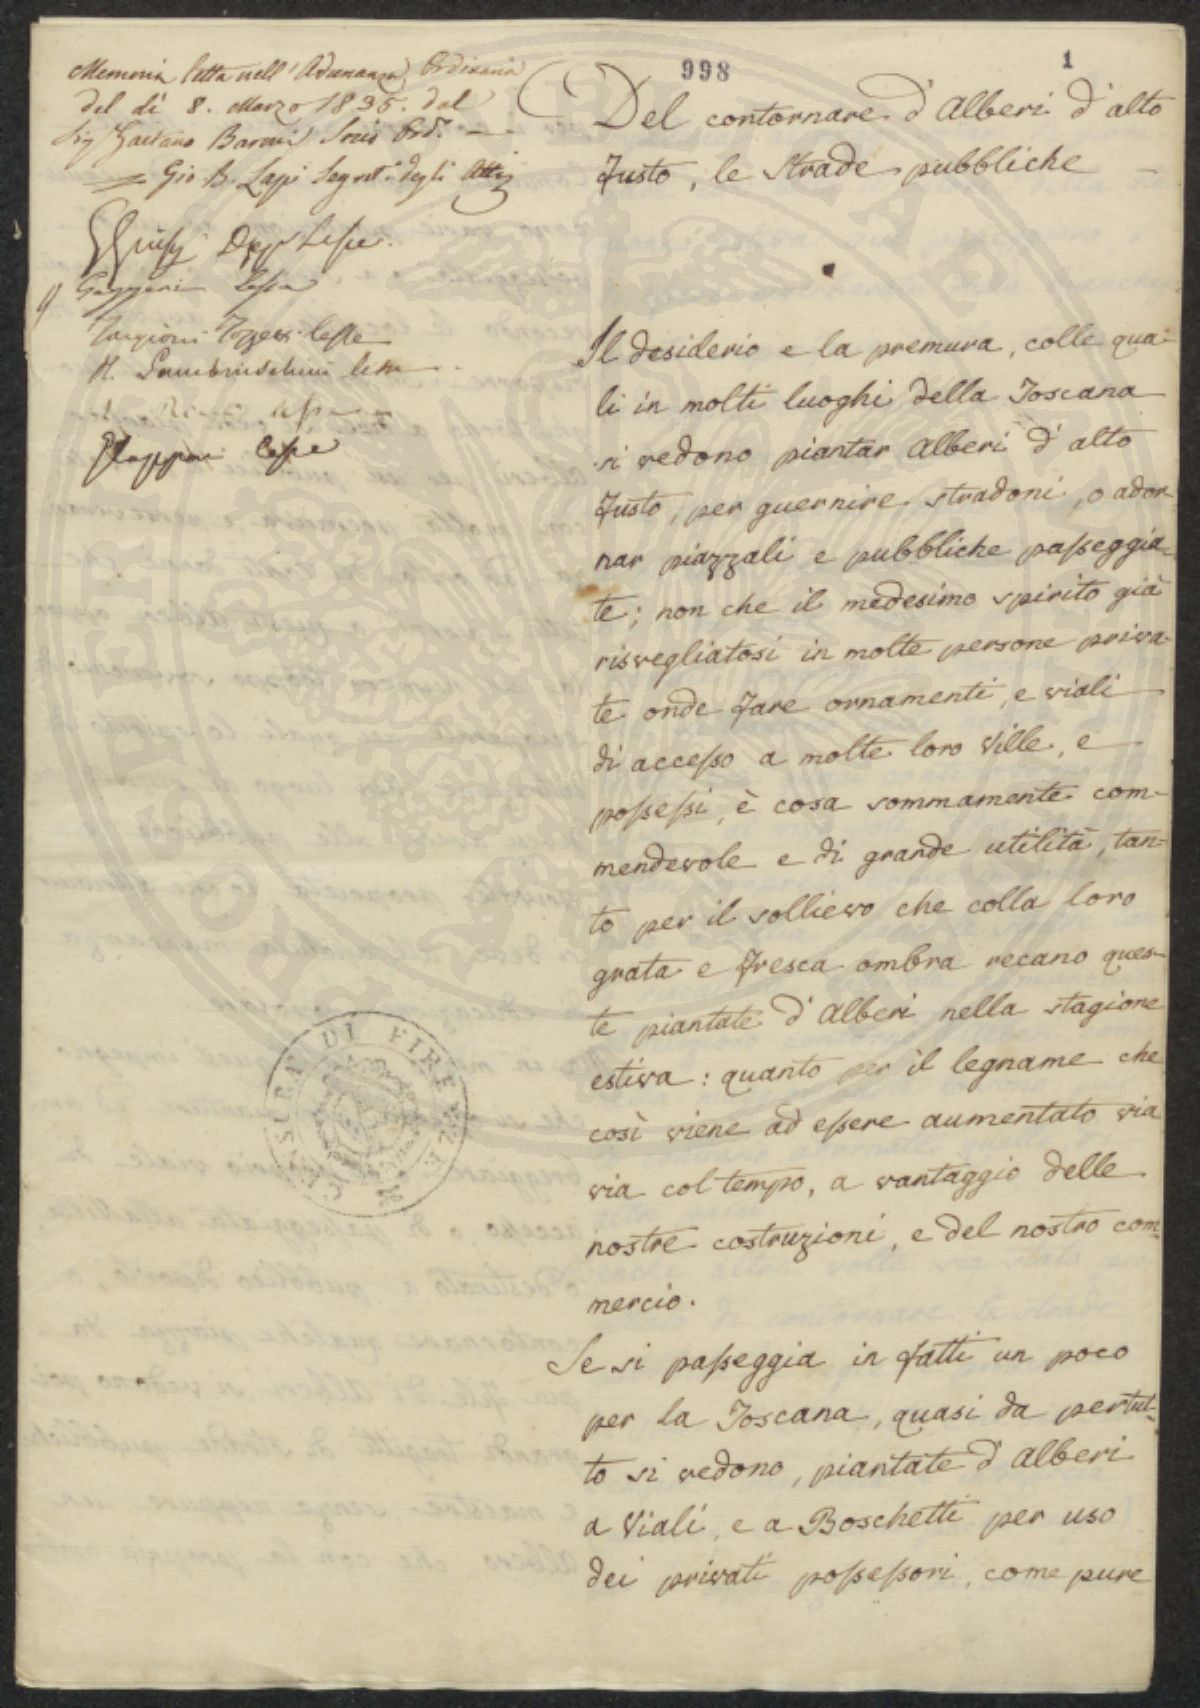 998
1
Memoria letta nell' Adunanza Ordinaria
del dì 8. Marzo 1835. dal
Sig Gaetano Baroni Socio Ord.º
Gio B. Lapi Segret. degli Atti
Lesse.
Lesse
Targioni Tozzetti lesse
R. Lambruschini lesse
lesse
Del contornare d'Alberi d'alto
fusto, le Strade pubbliche
Il desiderio e la premura, colle qua-
li in molti luoghi della Toscana
si vedono piantar Alberi d'alto
fusto, per guernire stradoni, o ador-
nar piazzali e pubbliche passeggia-
te; non che il medesimo spirito già
risvegliatosi in molte persone priva-
te onde fare ornamenti, e viali
di accesso a molte loro Ville, e
possessi, è cosa sommamente com-
mendevole e di grande utilità, tan-
to per il sollievo che colla loro
grata e fresca ombra recano ques-
te piantate d'Alberi nella stagione
estiva: quanto per il legname che
così viene ad essere aumentato via
via col tempo, a vantaggio delle
nostre costruzioni, e del nostro com-
mercio.
Se si passeggia in fatti un poco
per la Toscana, quasi da pertut-
to si vedono, piantate d'Alberi
a Viali, e a Boschetti per uso
dei privati possessori, come pure
CENSURA DI FIRENZE